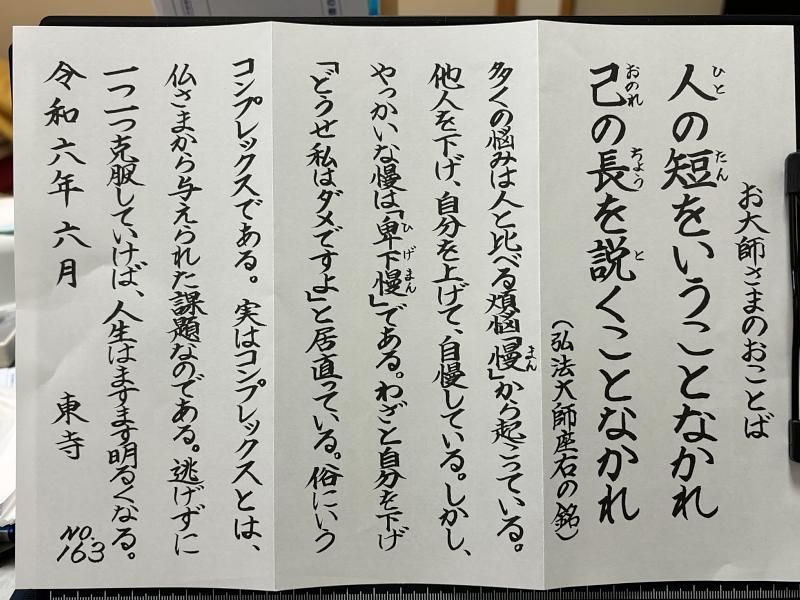 お大師さまのおことば
人の短をいうことなかれ
己の長を説くことなかれ
(弘法大師座右の銘)
多くの悩みは人と比べる煩悩「慢」から起こっている。
他人を下げ、自分を上げて、自慢している。しかし、
やっかいな慢は「卑下慢」である。わざと自分を下げ
「どうせ私はダメですよ」と居直っている。俗にいう
コンプレックスである。実はコンプレックスとは、
仏さまから与えられた課題なのである。逃げずに
一つ一つ克服していけば、人生はますます明るくなる。
令和六年六月 東寺
NO.163